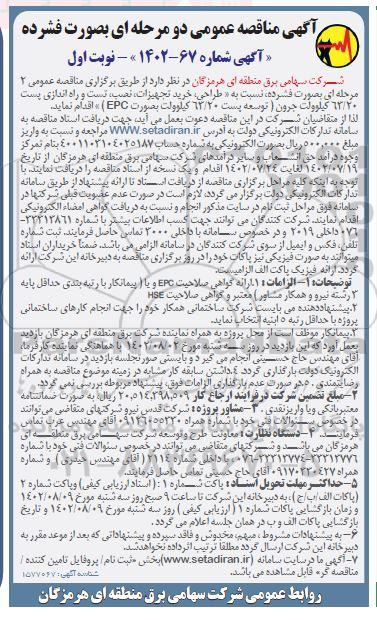 آگهی مناقصه عمومی دو مرحله ای بصورت فشرده
« آگهی شماره ۶۷-۱۴۰۲ » - نوبت اول
شرکت سهامی برق منطقه ای هرمزگان در نظر دارد از طریق برگزاری مناقصه عمومی ۲
مرحله ای بصورت فشرده، نسبت به « طراحی، خرید تجهیزات، نصب، تست و راه اندازی پست
۶۳/۲۰ کیلوولت جرون ( توسعه پست ۶۳/۲۰ کیلوولت بصورت EPC ) » اقدام نماید.
لذا از متقاضیان شرکت در این مناقصه دعوت بعمل می آید، جهت دریافت اسناد مناقصه به
سامانه تدارکات الکترونیکی دولت به آدرس www.setadiran.ir مراجعه و نسبت به واریز
مبلغ ۵۰۰،۰۰۰ ریال بصورت الکترونیکی به شماره حساب ۴۰۰۱۱۰۳۱۰۴۰۲۵۱۸۷ بنام تمرکز
وجوه درآمد حق انشعاب و سایر درآمدهای شرکت سهامی برق منطقه ای هرمزگان از تاریخ
۱۴۰۲/۰۷/۱۹ لغایت ۱۴۰۲/۰۷/۲۴ اقدام و یک نسخه از اسناد مناقصه را دریافت نمایند. با
توجه به اینکه کلیه مراحل برگزاری مناقصه از دریافت اسناد تا ارائه پیشنهاد از طریق سامانه
تدارکات الکترونیکی دولت برگزار می گردد، لازم است در صورت عدم عضویت قبلی شرکتها در
سامانه فوق مراحل ثبت نام در سایت مذکور انجام و نسبت به دریافت گواهی امضاء الکترونیکی
اقدام نمایند. شرکت کنندگان می توانند جهت کسب اطلاعات بیشتر با شماره ۳۳۳۱۲۸۶۱-
۰۷۶ داخلی ۲۰۱۹ و در خصوص سامانه با داخلی ۲۰۰۰ تماس حاصل فرمایند. ثبت شماره
تلفن، فکس و ایمیل از سوی شرکت کنندگان در سامانه الزامی می باشد. ضمناً خریداران اسناد
میتوانند به صورت فیزیکی نیز پاکات خود را در روز برگزاری مناقصه به دبیرخانه این شرکت ارائه
گردد. ارائه فیزیک پاکت الف الزامیست.
توضیحات: ۱- الزامات: ۱.ارائه گواهی صلاحیت EPC و یا ( پیمانکار با رتبه بندی حداقل پایه
۳ رشته نیرو و همکار مشاور) معتبر و گواهی صلاحیت HSE
۲.پیشنهاددهنده می بایست شرکت ساختمانی همکار خود را جهت انجام کارهای ساختمانی
پروژه با حداقل رتبه ۵ ابنیه انتخاب نماید.
۳.پیمانکار موظف است از محل پروژه به همراه نماینده شرکت برق منطقه ای هرمزگان بازدید
بعمل آورد که این بازدید در روز سه شنبه مورخ ۱۴۰۲/۰۸/۰۲ با هماهنگی نماینده کارفرما،
آقای مهندس حاج حسینی انجام می گیرد و بایستی صورتجلسه بازدید در سامانه تدارکات
الکترونیک دولت بارگذاری گردد. ۴.داشتن سابقه کار مشابه در زمینه موضوع مناقصه به همراه
رضایتمندی . ۵.در صورت عدم بارگذاری الزامات فوق، پیشنهاد مربوطه بررسی نمی گردد.
۲- مبلغ تضمین شرکت در فرآیند ارجاع کار ۲۰،۵۱۴،۲۹۸،۵۰۹ ریال؛ به صورت ضمانتنامه
معتبربانکی ویا واریزنقدی . ۳-مشاور پروژه: شرکت قدس نیرو شرکتهای متقاضی می‌توانند
در خصوص سئوالات فنی خود با شماره همراه آقای مهندس عرب تماس
فرمایند. ۴- دستگاه نظارت : معاونت طرح وتوسعه شرکت سهامی برق منطقه ای
هرمزگان می باشد و شرکتهای متقاضی می توانند در خصوص سئوالات فنی خود با شماره
داخلی شماره ۲۱۱۴ ( آقای مهندس جعفری ) و شماره
همراه آقای حاج حسینی تماس حاصل فرمایند.
۵-حداکثر مهلت تحویل اسناد : پاکت شماره ۱ : ( اسناد ارزیابی کیفی) وپاکت شماره ۲
(پاکات الف/ب/ج ) ، به دبیرخانه این شرکت تا ساعت ۹ صبح روز سه شنبه مورخ ۱۴۰۲/۰۸/۰۹
و زمان بازگشایی پاکات شماره ۱ ( ارزیابی کیفی ) روز سه شنبه مورخ ۱۴۰۲/۰۸/۰۹ و تاریخ
بازگشایی پاکات الف و ب در همان جلسه اعلام می گردد .
۶- به پیشنهادات مشروط ، مبهم، مخدوش و فاقد سپرده و پیشنهاداتی که بعد از موعد مقرر به
دبیرخانه این شرکت ارسال گردد مطلقا ترتیب اثرداده نخواهدشد.
۷- آگهی ما در سایت سامانه (www.setadiran.ir) بخش «ثبت نام/ پروفایل تامین کننده /
مناقصه گر» قابل مشاهده می باشد. شناسه آگهی: ۱۵۷۷۰۶۷
روابط عمومی شرکت سهامی برق منطقه ای هرمزگان